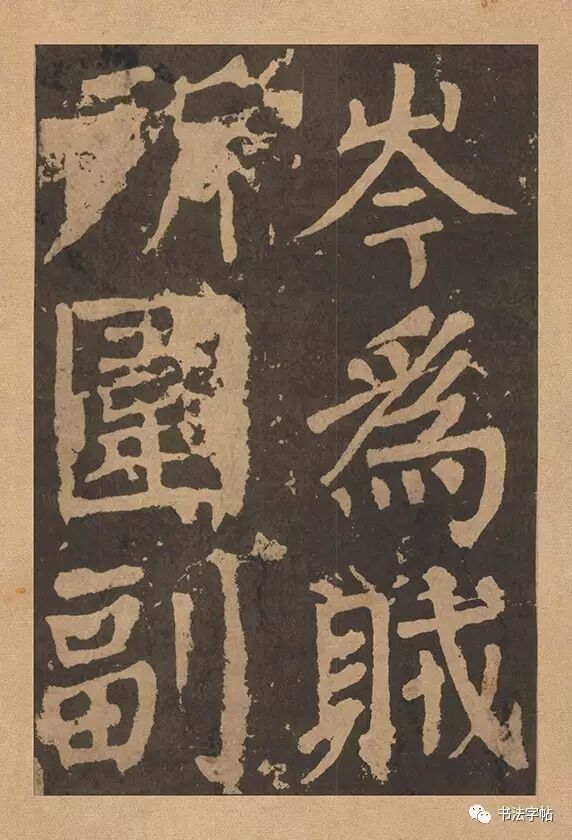 岑為賊
所圍副
书法字帖